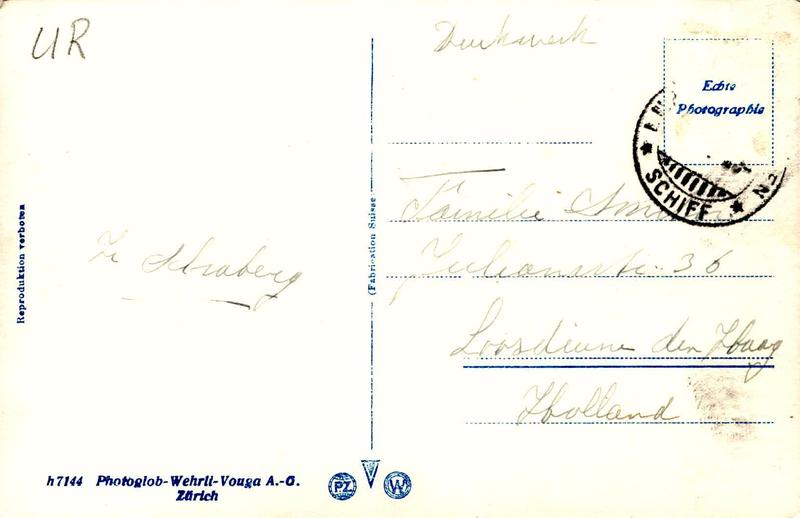 UR
Druckswerk
Echte
Photographie
SCHIFF
Familie
Julianastr. 36
Loosdiunen den Haag
Holland
Reproduktion verboten
(Fabrication Suisse)
h7144 Photoglob-Wehrli-Vouga A.-G.
Zürich
PZ
W